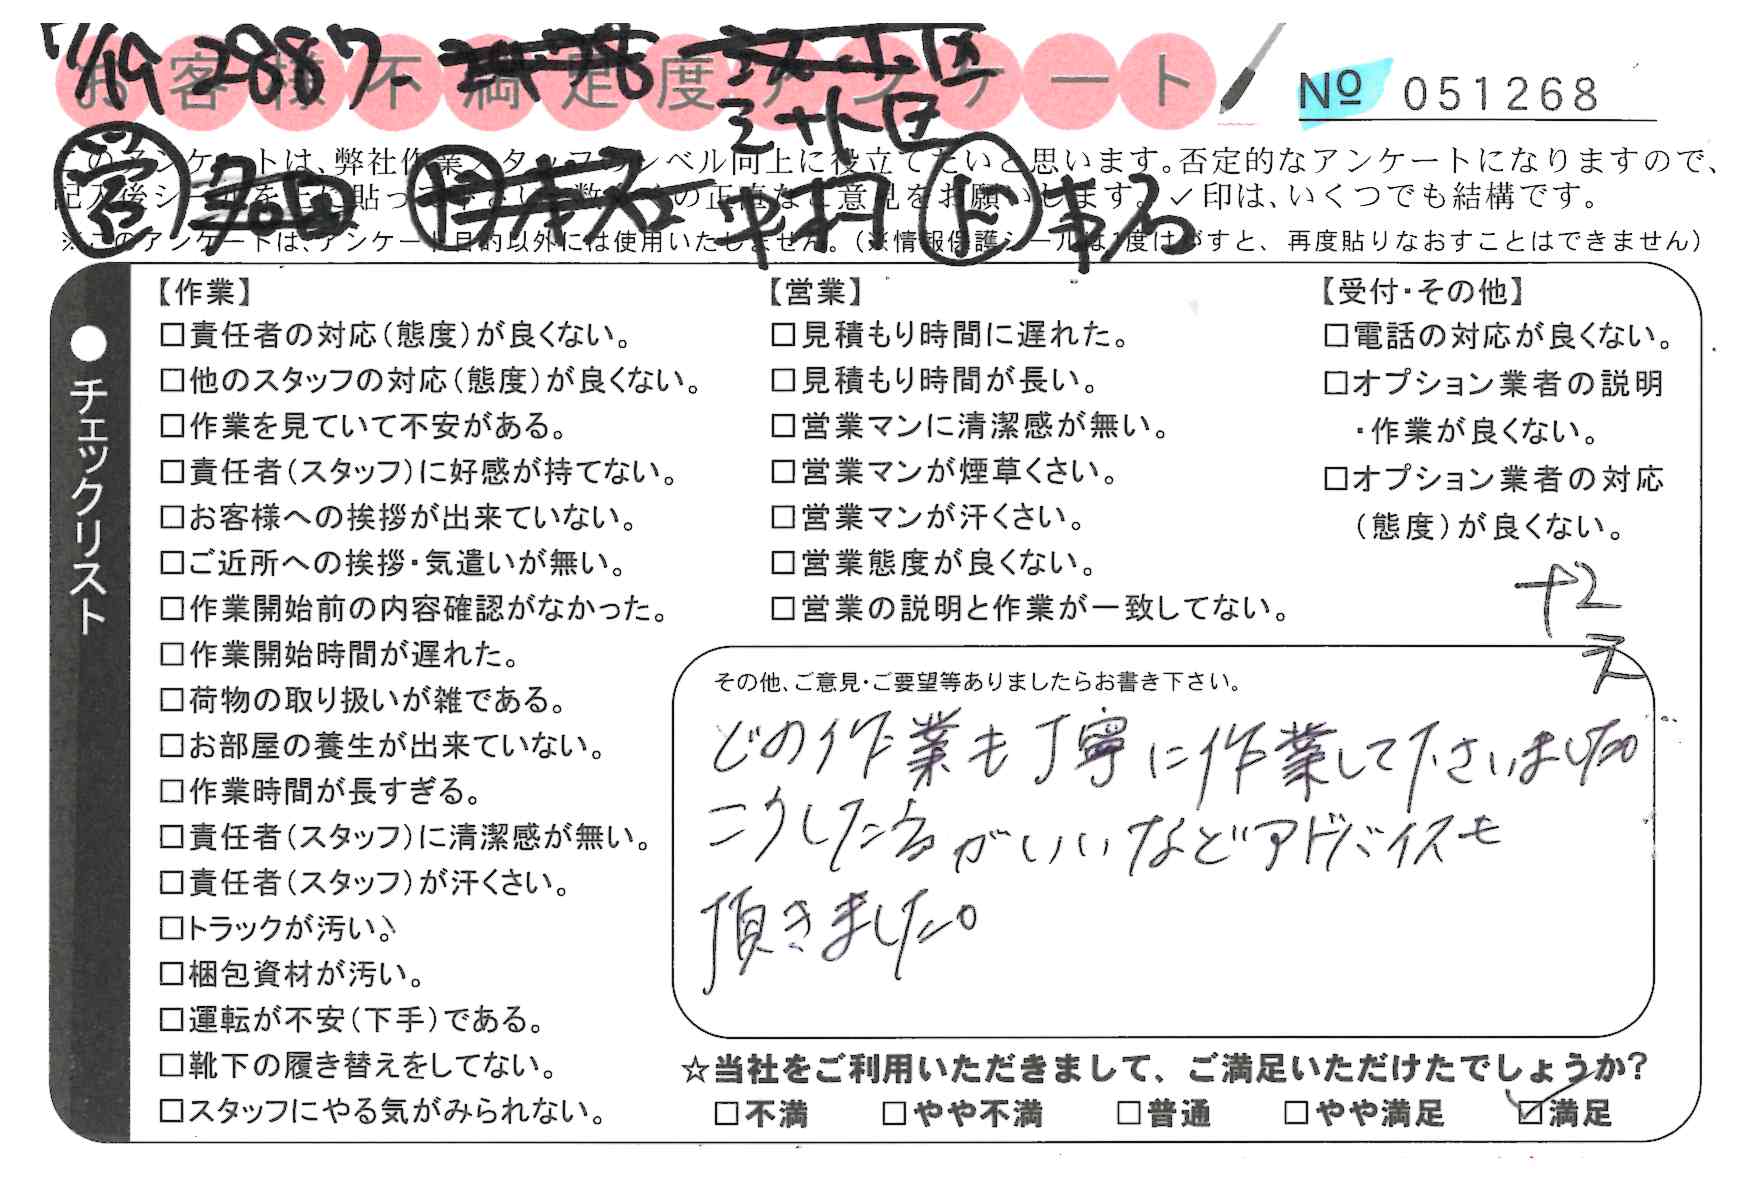 1/19 2887
お客様不満足度アンケート
No 051268
このアンケートは、弊社作業スタッフのレベル向上に役立てたいと思います。否定的なアンケートになりますので、
記入後シールを上に貼って下さい。数々の正直なご意見をお願いします。✓印は、いくつでも結構です。
※このアンケートは、アンケート目的以外には使用いたしません。(※情報保護シールは1度はがすと、再度貼りなおすことはできません)
営
中村
ド
●チェックリスト
【作業】
□責任者の対応(態度)が良くない。
□他のスタッフの対応(態度)が良くない。
□作業を見ていて不安がある。
□責任者(スタッフ)に好感が持てない。
□お客様への挨拶が出来ていない。
□ご近所への挨拶・気遣いが無い。
□作業開始前の内容確認がなかった。
□作業開始時間が遅れた。
□荷物の取り扱いが雑である。
□お部屋の養生が出来ていない。
□作業時間が長すぎる。
□責任者(スタッフ)に清潔感が無い。
□責任者(スタッフ)が汗くさい。
□トラックが汚い。
□梱包資材が汚い。
□運転が不安(下手)である。
□靴下の履き替えをしてない。
□スタッフにやる気がみられない。
【営業】
□見積もり時間に遅れた。
□見積もり時間が長い。
□営業マンに清潔感が無い。
□営業マンが煙草くさい。
□営業マンが汗くさい。
□営業態度が良くない。
□営業の説明と作業が一致してない。
【受付・その他】
□電話の対応が良くない。
□オプション業者の説明
・作業が良くない。
□オプション業者の対応
(態度)が良くない。
+2
その他、ご意見・ご要望等ありましたらお書き下さい。
どの作業も丁寧に作業して下さいました。
こうした方がいいなどアドバイスも
頂きました。
☆当社をご利用いただきまして、ご満足いただけたでしょうか?
□不満 □やや不満 □普通 □やや満足 ☑満足